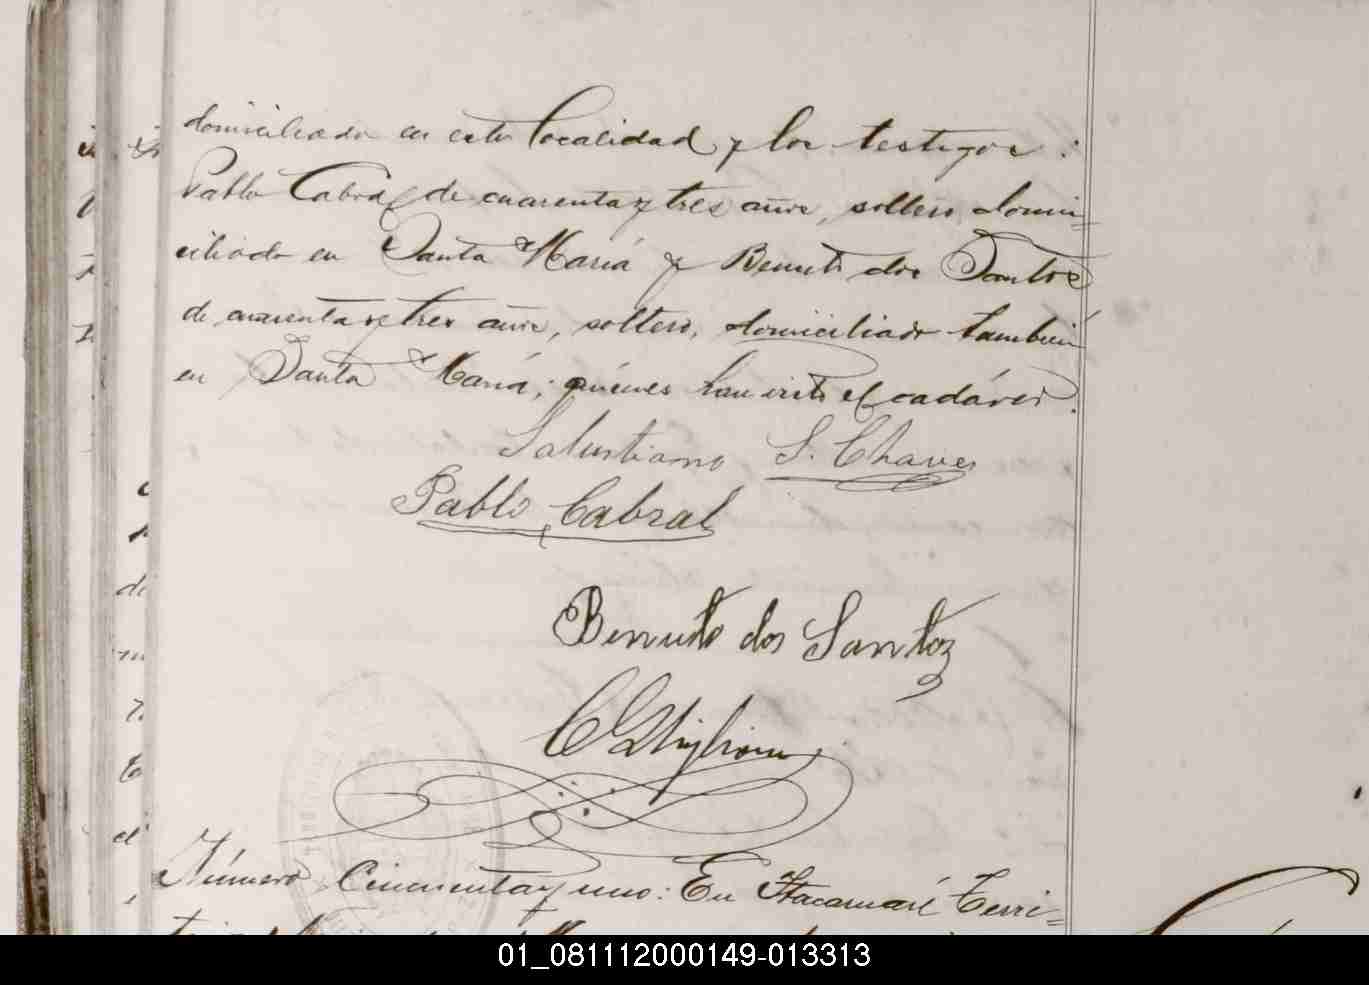 domiciliado en esta localidad y los testigos:
Pablo Cabral de cuarenta y tres años, soltero, domi=
ciliado en Santa María y Benito dos Santos
de cuarenta y tres años, soltero, domiciliado también
en Santa María; quienes han visto el cadáver.
Salustiano S. Chaves
Pablo Cabral
Benito dos Santos
Número Cincuenta y uno: En Itacaruaré Terri=
01_081112000149-013313